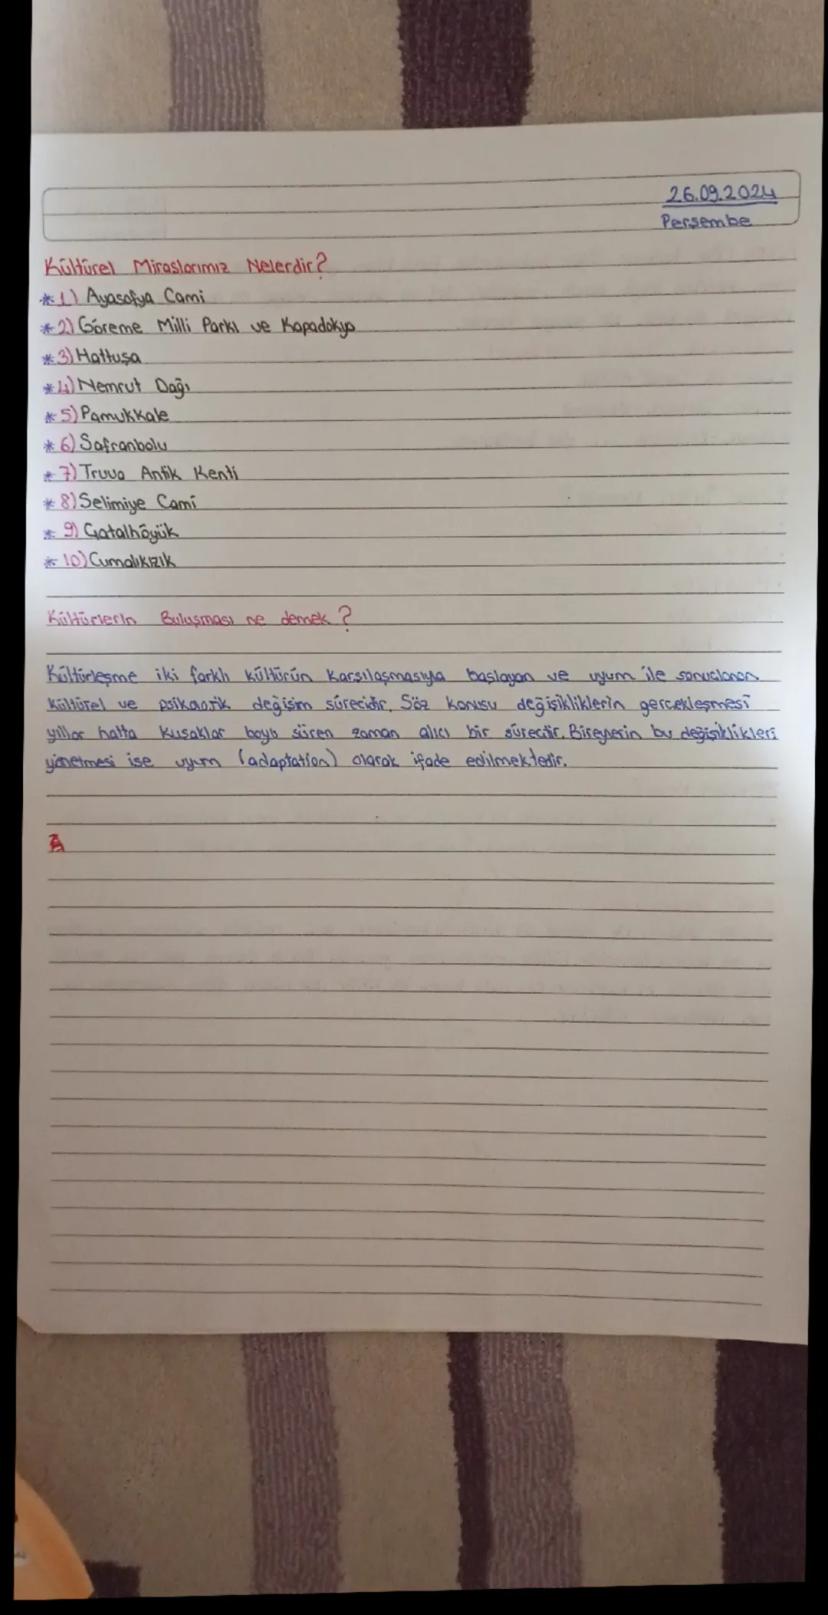 26.09.2024
Perşembe
Kültürel Miraslarımız Nelerdir?
* 1) Ayasofya Cami
* 2) Göreme Milli Parkı ve Kapadokya
* 3) Hattuşa
* 4) Nemrut Dağı
* 5) Pamukkale
* 6) Safranbolu
* 7) Truva Antik Kenti
* 8) Selimiye Cami
* 9) Çatalhöyük
* 10) Cumalıkızık
Kültürlerin Buluşması ne demek?
Kültürleşme iki farklı kültürün karşılaşmasıyla başlayan ve uyum ile sonuclanan
kültürel ve değişim sürecidir. Söz konusu değişikliklerin gerçekleşmesi
yıllar hatta kuşaklar boyu süren zaman alıcı bir sürecdir. Bireylerin bu değişiklikleri
yönetmesi ise uyum (adaptation) olarak ifade edilmektedir.
A